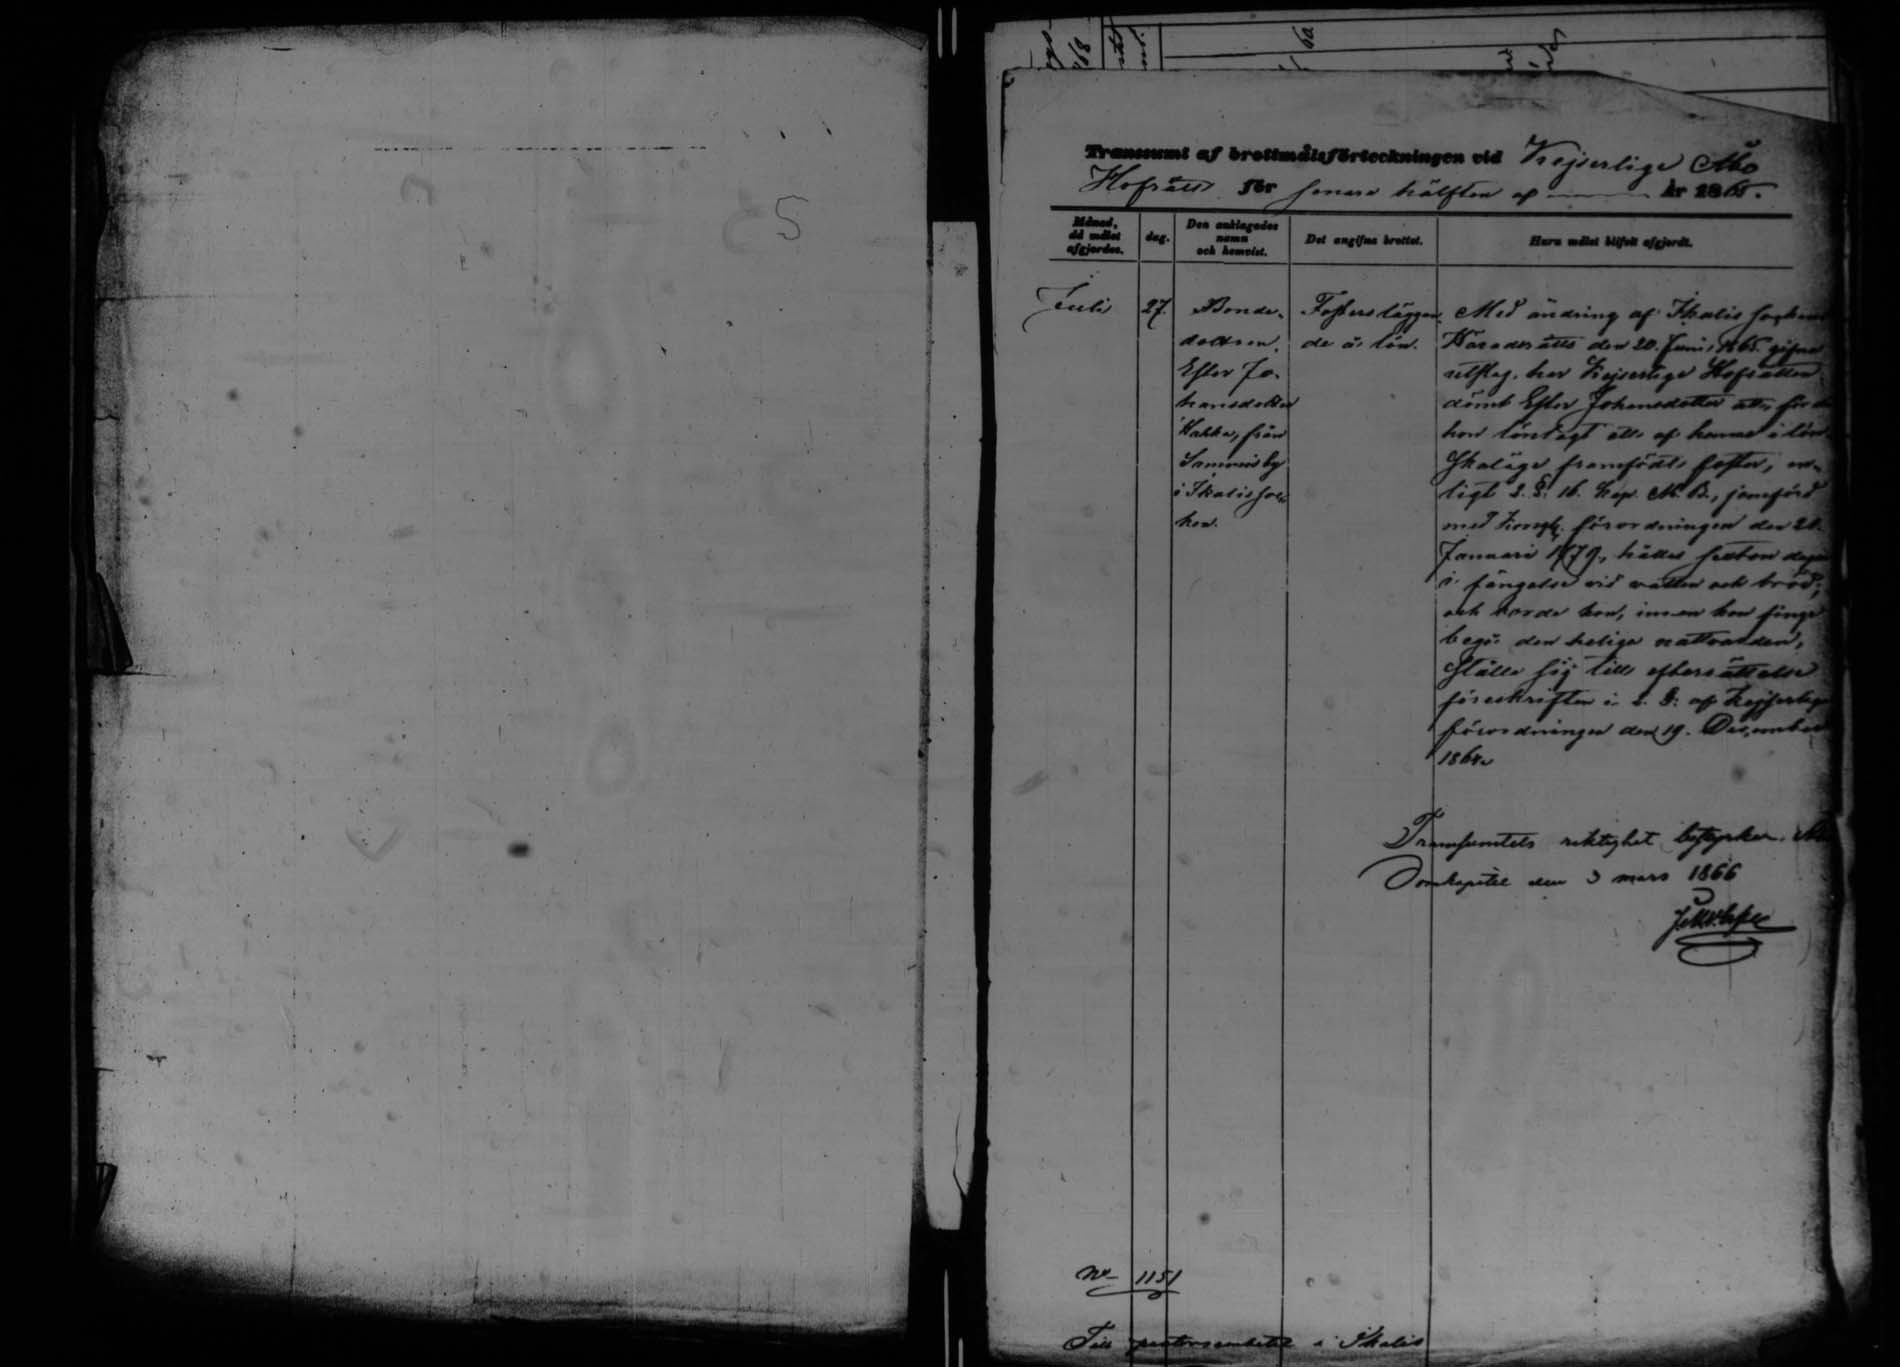 Transsumt af brottmålsförteckningen vid Kejserliga Åbo
Hofrätt för senare hälften af År 1865.
Månad,
då målet
afgjordes.
dag.
Den anklagades
namn
och hemvist.
Det angifna brottet.
Huru målet blifvit afgjordt.
Juli
27.
Bonde-
dottren
Ester Jo-
hansdotter
Kakko, från
by
i Ikalis soc-
ken.
Fosters läggan-
de å lön.
Med ändring af Ikalis sockens
Häradsrätts den 20. Juni 1865 gifna
utslag, har Kejserliga Hofrätten
dömt Ester Johansdotter att, för det
hon lönlagt ett af henne i lön-
skaläge framfödt foster, en-
ligt 2. §. 16. Kap. M. B., jemförd
med Kongl. förordningen den 20.
Januari 1779, hållas sexton dagar
i fängelse vid vatten och bröd;
och borde hon, innan hon finge
begå den heliga nattvarden,
ställa sig till efterrättelse
föreskriften i 2. §: af Kejserliga
förordningen den 19. December
1864.
Transsumtets riktighet betyrker. Åbo
Domkapitel den 3 mars 1866
No 1151
Till pastorsembetet i Ikalis
5